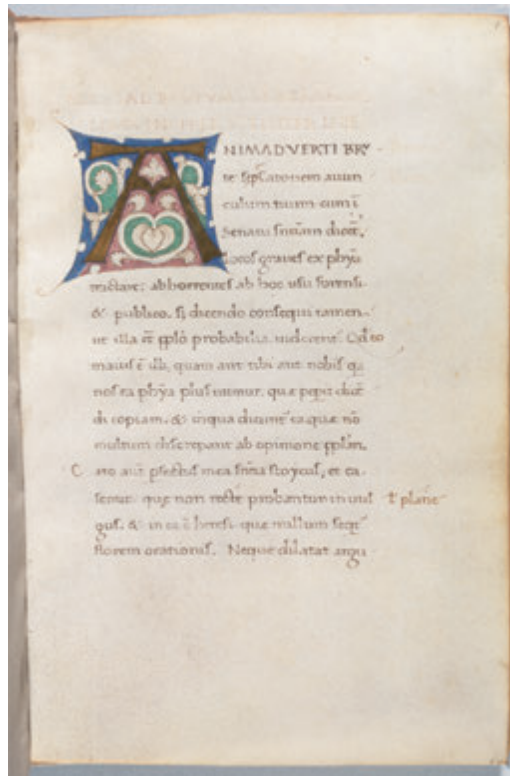 ANIMADVERTI BRV
te sęp Catonem auun
culum tuum cum ī
Senatu sn̄iam dicēt,
locos graues ex phȳa
tractare: abhorrentes ab hoc usu forensi
& publico. sʒ dicendo consequi tamen.
ut illa ēt pplō probabilia uiderent᷑. Qd eo
maius ē illi, quam aut tibi aut nobis qa
nos ea phȳa plus utimur. quę pepit dicē
di copiam. & inqua dicunt᷑ ea quę nō
multum discrepant ab opinione pplari.
Cato aut̄ pfectus mea sn̄ia stoycus, et ea
sentit quę non recte probantur in uul
ł plane
gus. & in ea ē heresi quę nullum seqt᷑
florem orationis. Neque dilatat argu